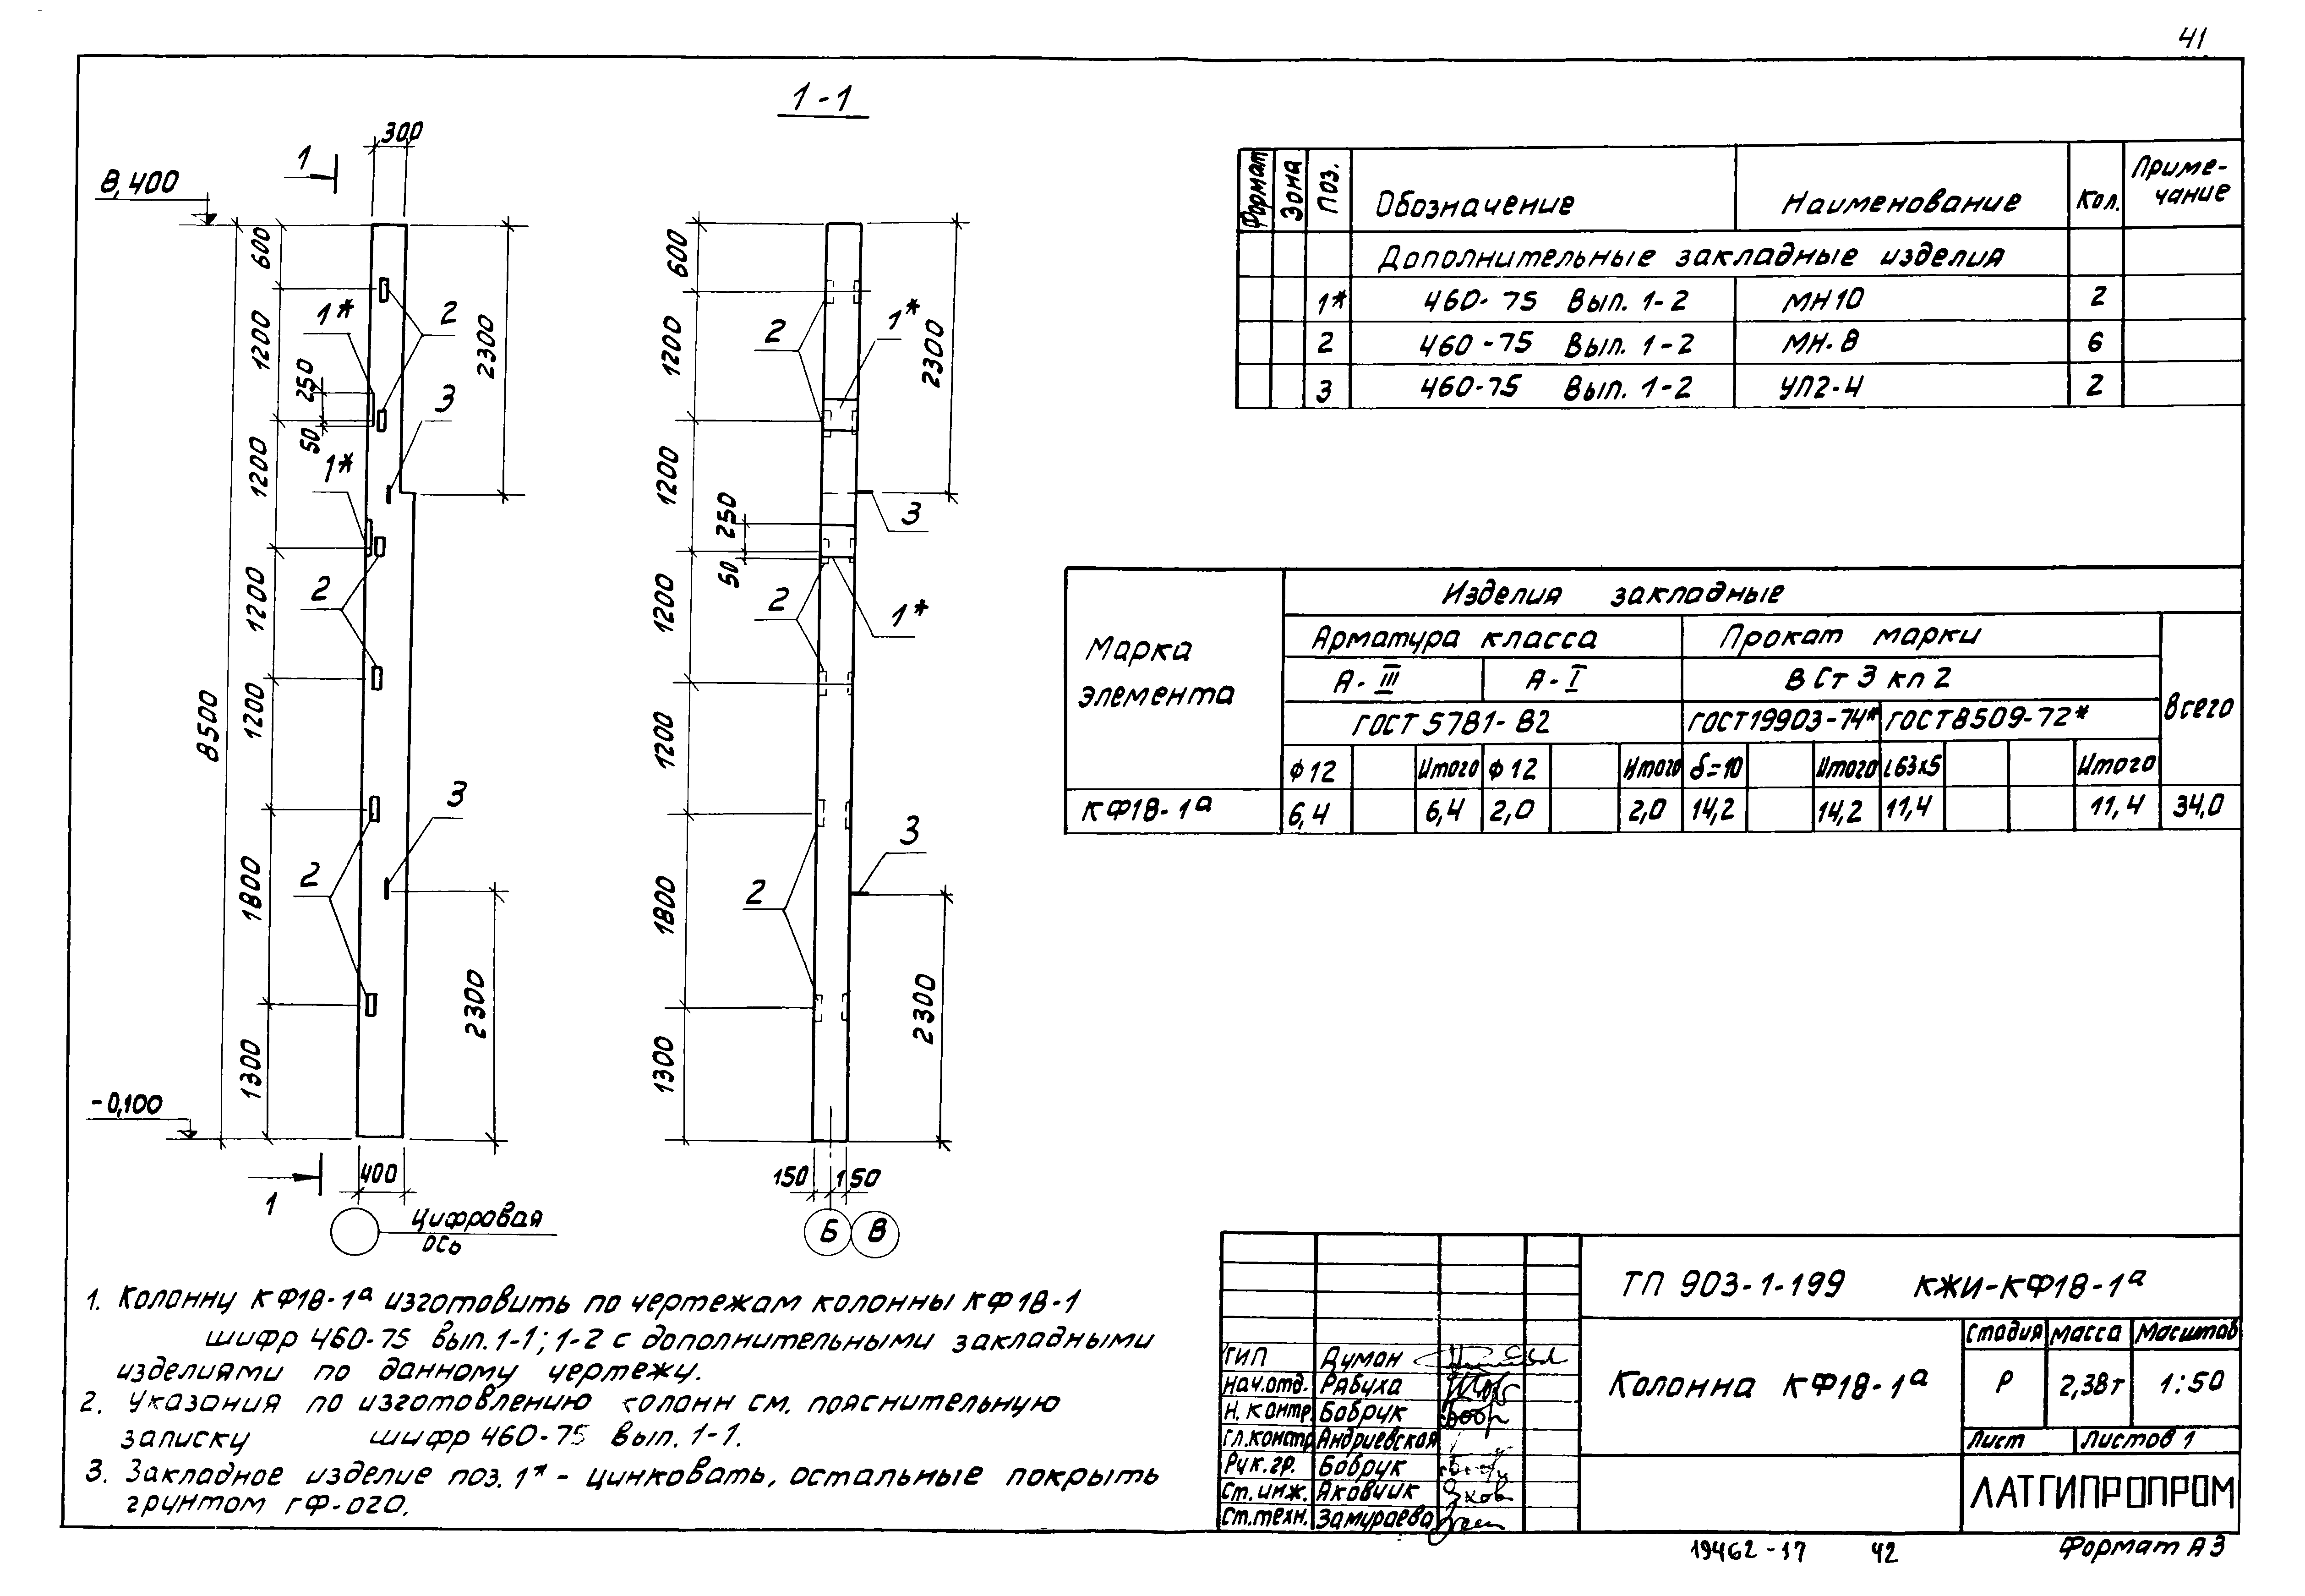 41
1-1
300
1
8,400
600
1200
1*
2
250
50
2300
3
1200
1*
1200
2
8500
1200
3
1800
2
2300
1300
-0,100
400
1
Цифровая
ось
600
2300
1*
2
1200
1200
250
50
3
2
1*
1200
1200
3
2
1800
2300
1300
150
150
Б
В
Формат
Зона
Поз.
Обозначение
Наименование
Кол.
Приме-
чание
Дополнительные закладные изделия
1* 460-75 Вып. 1-2 МН10 2
2 460-75 Вып. 1-2 МН-8 6
3 460-75 Вып. 1-2 УП2-4 2
Марка
элемента
Изделия закладные
Арматура класса
Прокат марки
Всего
А-III
А-I
ВСт3кп2
ГОСТ 5781-82
ГОСТ19903-74*
ГОСТ8509-72*
ф12 Итого ф12 Итого δ=10 Итого L63х5 Итого
КФ18-1а 6,4 6,4 2,0 2,0 14,2 14,2 11,4 11,4 34,0
1. Колонну КФ18-1а изготовить по чертежам колонны КФ18-1
шифр 460-75 вып.1-1; 1-2 с дополнительными закладными
изделиями по данному чертежу.
2. Указания по изготовлению колонн см. пояснительную
записку шифр 460-75 вып. 1-1.
3. Закладное изделие поз. 1* - цинковать, остальные покрыть
грунтом гф-020.
ТП 903-1-199 КЖИ-КФ18-1а
Колонна КФ18-1а
Стадия Масса Масштаб
Р 2,38т 1:50
Лист Листов 1
ЛАТГИПРОПРОМ
ГИП Думан
Нач.отд. Рябуха
Н. контр. Бобрук
Гл.констр Андриевская
Рук.гр. Бобрук
Ст.инж. Яковчик
Ст.техн. Замураева
19462-17 42
Формат А3